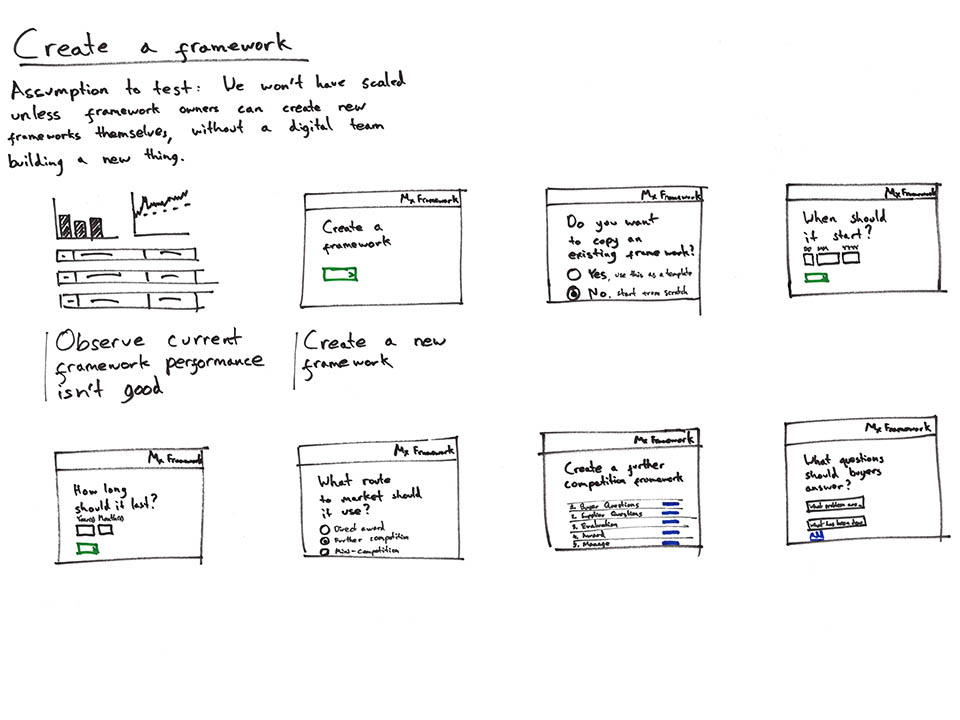 Create a framework
Assumption to test: We won't have scaled
unless framework owners can create new
frameworks themselves, without a digital team
building a new thing.
Observe current
framework performance
isn't good
Mx Framework
Create a
framework
>
Create a new
framework
Mx Framework
Do you want
to copy an
existing framework?
Yes, use this as a template
No, start from scratch
Mx Framework
When should
it start?
DD MM YYYY
Mx Framework
How long
should it last?
Year(s) Month(s)
Mx Framework
What route
to market should
it use?
Direct award
Further competition
Mini-competition
Mx Framework
Create a further
competition framework
1. Buyer Questions
2. Supplier Questions
3. Evaluation
4. Award
5. Manage
Mx Framework
What questions
should buyers
answer?
What problem are
What has been done